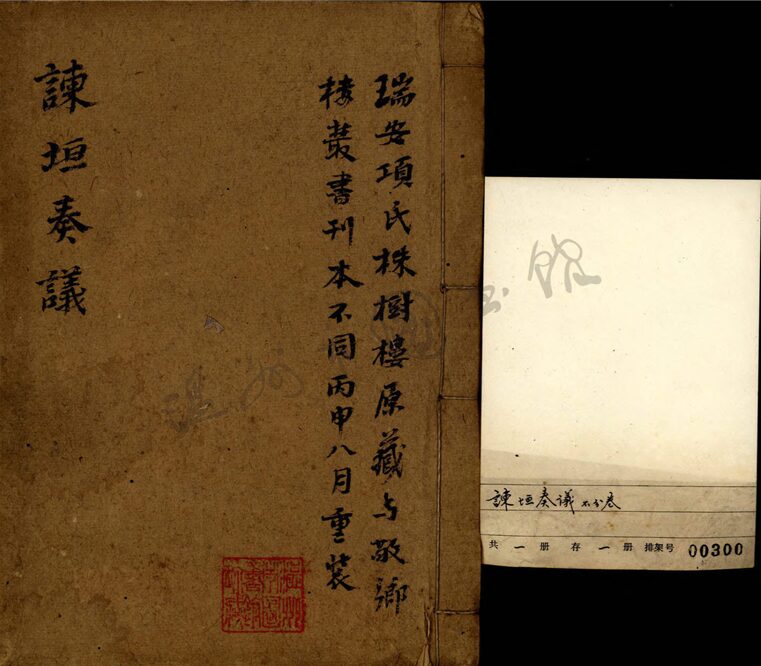 瑞安項氏株樹樓原藏与敬鄉
楼叢書刊本不同丙申八月重裝
諫垣奏議
温州图书馆
諫垣奏議 不分卷
共一册 存一册 排架号 00300